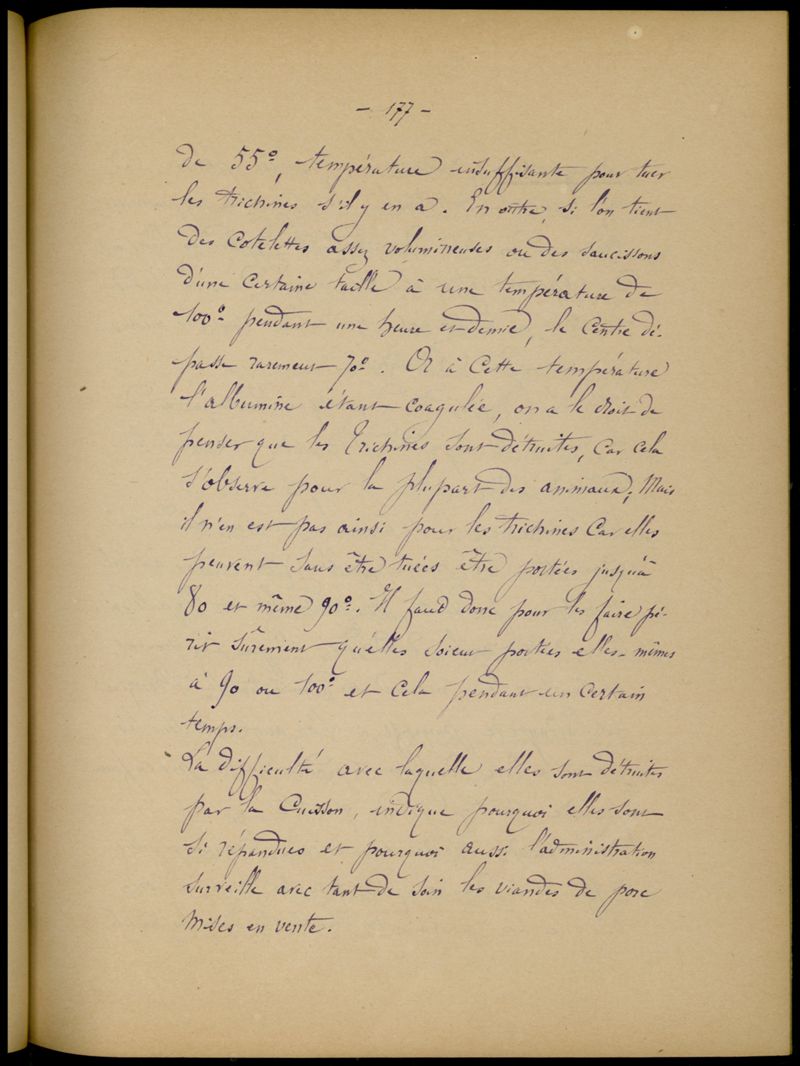 - 177 -
de 55°, température insuffisante pour tuer
les trichines s'il y en a. En outre, si l'on tient
des cotelettes assez volumineuses ou des saucissons
d'une certaine taille à une température de
100° pendant une heure et demie, le centre dé-
passe rarement 70°. Or à cette température
l'albumine étant coagulée, on a le droit de
penser que les Trichines sont détruites, car cela
s'observe pour la plupart des animaux; Mais
il n'en est pas ainsi pour les trichines car elles
peuvent sans être tuées être portées jusqu'à
80 et même 90°. Il faud donc pour les faire pé-
rir sûrement qu'elles soient portées elles-mêmes
à 90 ou 100° et cela pendant un certain
temps.
La difficulté avec laquelle elles sont détruites
par la cuisson, indique pourquoi elles sont
si répandues et pourquoi aussi l'administration
surveille avec tant de soin les viandes de porc
mises en vente.